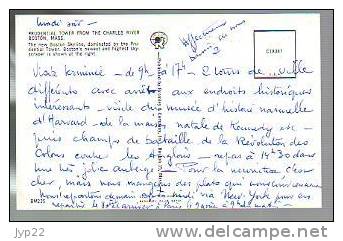 lundi soir
PRUDENTIAL TOWER FROM THE CHARLES RIVER
BOSTON, MASS.
The new Boston Skyline, dominated by the Pru-
dential Tower. Boston's newest and highest sky-
scraper is shown at the right.
Visite terminée - de 9h à 17h - 2 tours de ville
différents avec arrêts aux endroits historiques
intéressants - visite du musée d'histoire naturelle
d'Harvard - de la maison natale de Kennedy etc -
puis champs de bataille de la Révolution des
Colons contre les Anglais - repas à 14h30 dans
une auberge - Pour la nourriture
mais nous mangeons des plats qui
Nous repartons demain via New York puis en
à Paris
BM235
jyp22